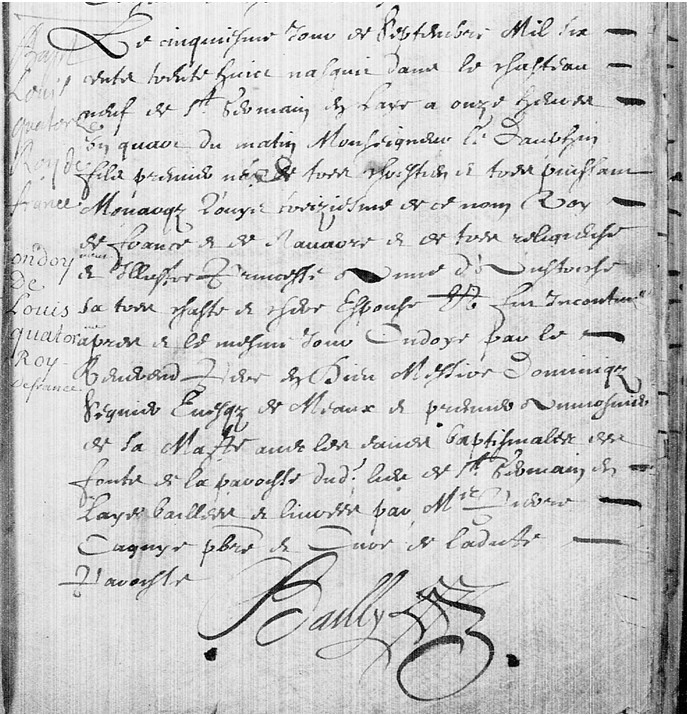 Le cinquiesme Jour de Septembre Mil six
cents trente huict nasquit dans le chasteau
neuf de St Germain en Laye a onze heures
un quart du matin Monseigneur le Dauphin
filz premier né de tres chrestien & tres puissant
Monarq Louys treiziesme de ce nom Roy
de france & de Navarre & de tres religieuse
& Illustre Princesse Anne d'Austriche
sa tres chaste & chere Espouse Et fut Incontinent
apres & le mesme Jour Ondoyé par le
Reverend Pere en Dieu Messire Dominiq
Seguier Evesq de Meaux & premier Aumosnier
de sa Maj.té avec les eaues baptismales des
fonts de la paroisse dud. lieu de St Germain en
Laye baillees & livrees par Mre Pierre
Cagnye pbre & Curé de ladicte
Paroisse
Bailly
Bapt
Louis
quatorze
Roy de
france
ondoyment
de
Louis
quatorze
Roy
de france